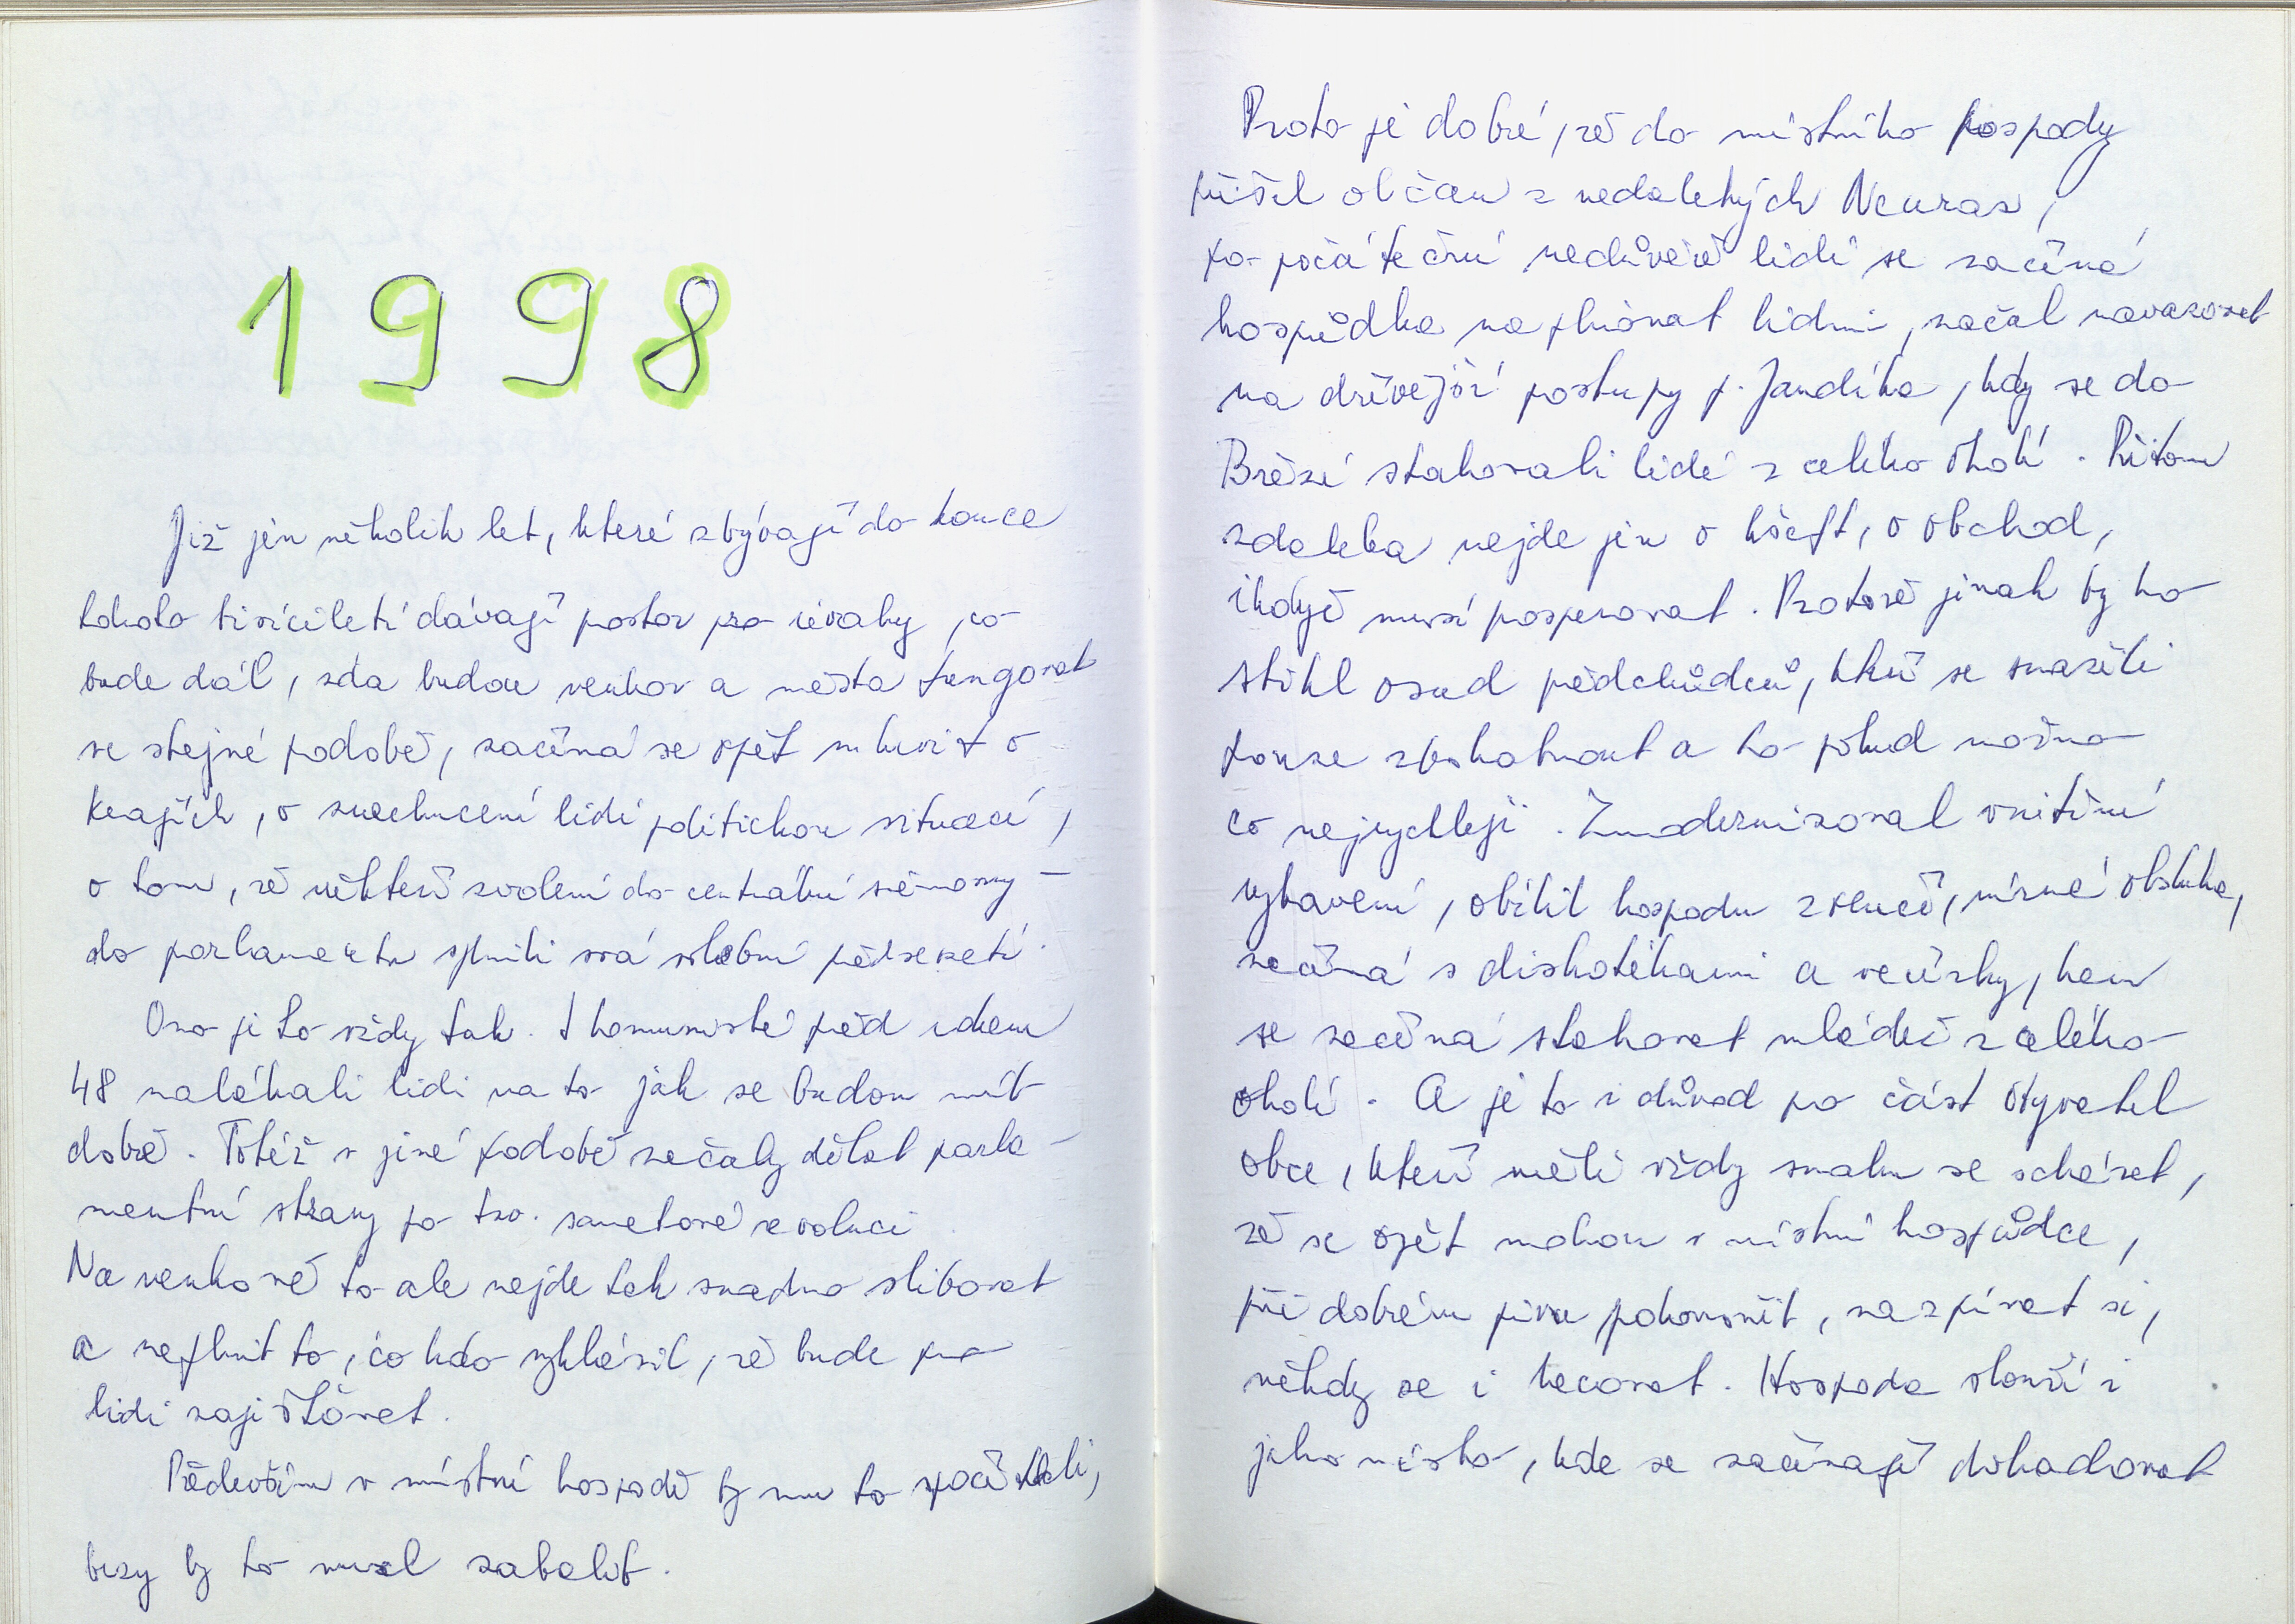 1998
Již jen několik let, které zbývají do konce
tohoto tisíciletí dávají prostor pro úvahy, co
bude dál, zda budou venkov a města fungovat
ve stejné podobě, začíná se opět mluvit o
krajích, o znechucení lidí politickou situací,
o tom, že někteří zvolení do centrální sněmovny –
do parlamentu splnili svá volební předsevzetí.
Ono je to vždy tak. I komunisté před rokem
48 nalákali lidi na to jak se budou mít
dobře. Totéž v jiné podobě začaly dělat parla-
mentní strany po tzv. sametové revoluci
Na venkově to ale nejde tak snadno slibovat
a neplnit to, co kdo vyhlásil, že bude pro
lidi zajišťovat.
Především v místní hospodě by mu to spočítali,
brzy by to musel zabalit.
Proto je dobré, že do místního hospody
přišel občan z nedalekých Neuraz,
po počáteční nedůvěře lidí se začíná
hospůdka naplňovat lidmi, začal navazovat
na dřívější postupy p. Jandíka, kdy se do
Březí stahovali lidé z celého okolí. Přitom
zdaleka nejde jen o kšeft, o obchod,
ikdyž musí prosperovat. Protože jinak by ho
stihl osud předchůdců, kteří se snažili
pouze zbohatnout a to pokud možno
co nejrychleji. Zmodernizoval vnitřní
vybavení, obílil hospodu zvenčí,
začíná s diskotékami a večírky, sem
se začíná stahovat mládež z celého
okolí. A je to i důvod pro část obyvatel
obce, kteří měli vždy snahu se scházet,
že se opět mohou v místní hospůdce,
při dobrém pivu pohovořit, zazpívat si,
někdy se i hecovat. Hospoda slouží i
jako místo, kde se začínají dohadovat